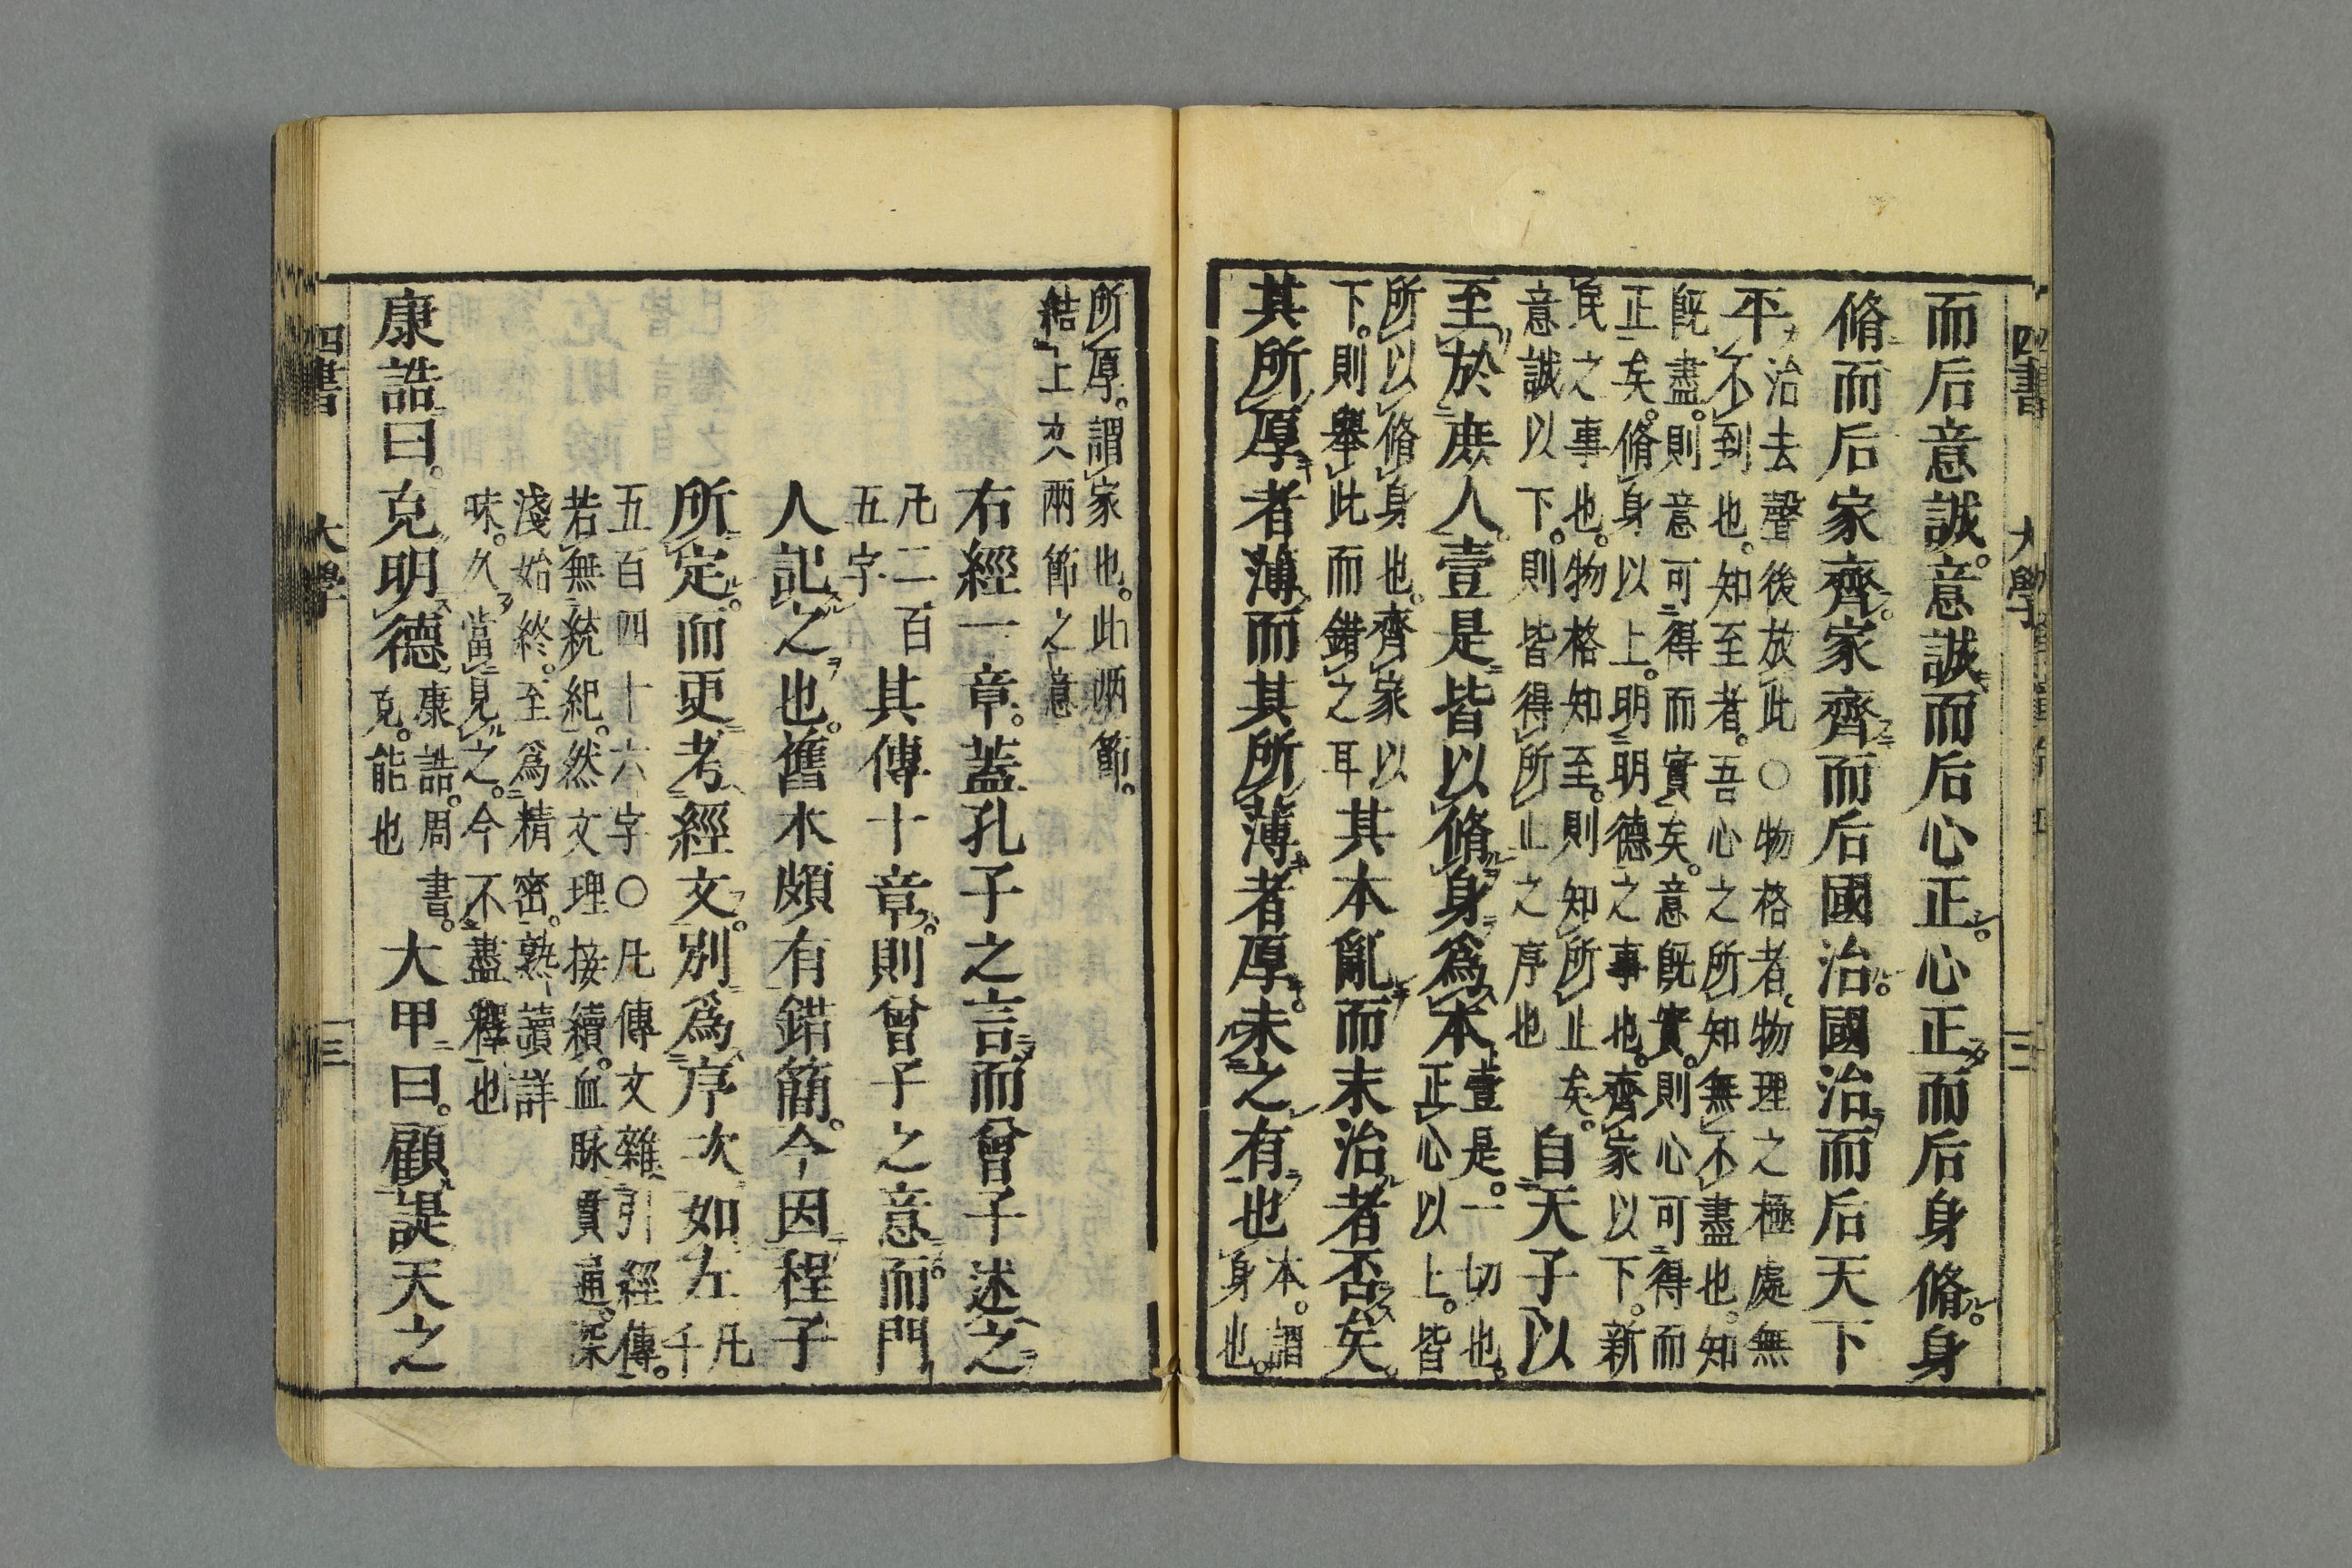 四書 大學 二
而后意誠。意誠而后心正。心正而后身脩。身
脩而后家齊。家齊而后國治。國治而后天下
平
治去聲後放此○物格者。物理之極處無
不到也。知至者。吾心之所知無不盡也。知
既盡。則意可得而實矣。意既實。則心可得而
正矣。脩身以上。明明德之事也。齊家以下。新
民之事也。物格知至。則知所止矣。
意誠以下。則皆得所止之序也
自天子以
至於庶人。壹是皆以脩身爲本
壹是。一切也。
正心以上。皆
所以脩身也。齊家以
下。則舉此而錯之耳
其本亂而末治者否矣。
其所厚者薄而其所薄者厚。未之有也
本。謂
身也。
所厚。謂家也。此兩節。
結上文兩節之意
右經一章。蓋孔子之言。而曾子述之
凡二百
五字
其傳十章。則曾子之意。而門
人記之也。舊本頗有錯簡。今因程子
所定。而更考經文。別爲序次如左
凡千
五百四十六字○凡傳文雜引經傳。
若無統紀。然文理接續。血脉貫通。深
淺始終。至爲精密。熟讀詳
味。久當見之。今不盡釋也
康誥曰。克明德
康誥。周書。
克。能也
大甲曰。顧諟天之
四書 大學 三